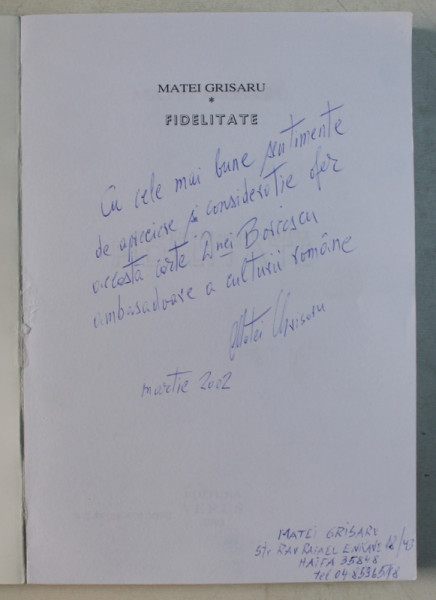 MATEI GRISARU
*
FIDELITATE
Cu cele mai bune sentimente
de apreciere și considerație ofer
aceasta carte Dnei Boicescu
ambasadoare a culturii române
Matei Grisaru
martie 2002
MATEI GRISARU
Str RAV RAFAEL 12/43
HAIFA 35848
tel 04 8536598